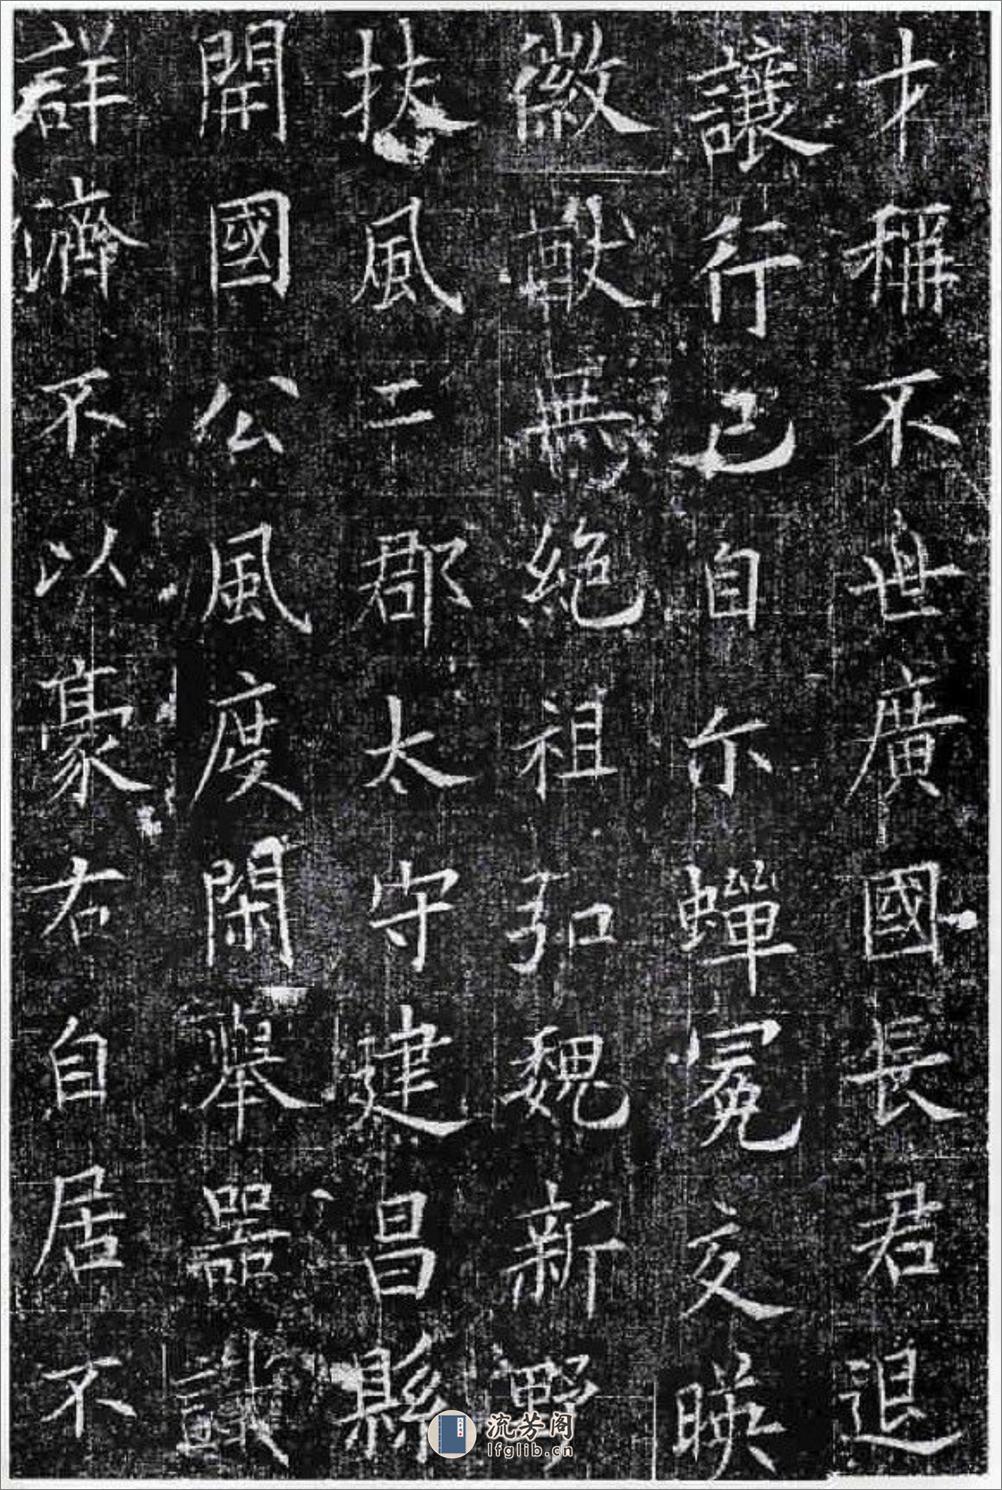 才稱不世廣國長君退
讓行己自尒蟬冕交暎
徽猷無絕祖弘魏新野
扶風二郡太守建昌縣
開國公風度閑舉器識
詳濟不以豪右自居不
流芳阁
lfglib.cn